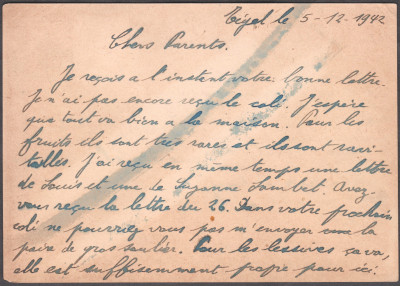 Tigel le 5-12-1942
Chers Parents.
Je reçois a l'instent votre bonne lettre.
Je n'ai pas encore reçu le coli. J'espère
que tout va bien a la maison. Pour les
fruits ils sont très rares et ils sont ravi-
tailles. J'ai reçu en même temps une lettre
de Louis et une de Suzanne Jambet. Avez-
vous reçu la lettre du 26. Dans votre prochain
coli ne pourriez vous pas m'envoyer une
paire de gros soulier. Pour les lessives ça va,
elle est suffisemment propre pour ici.